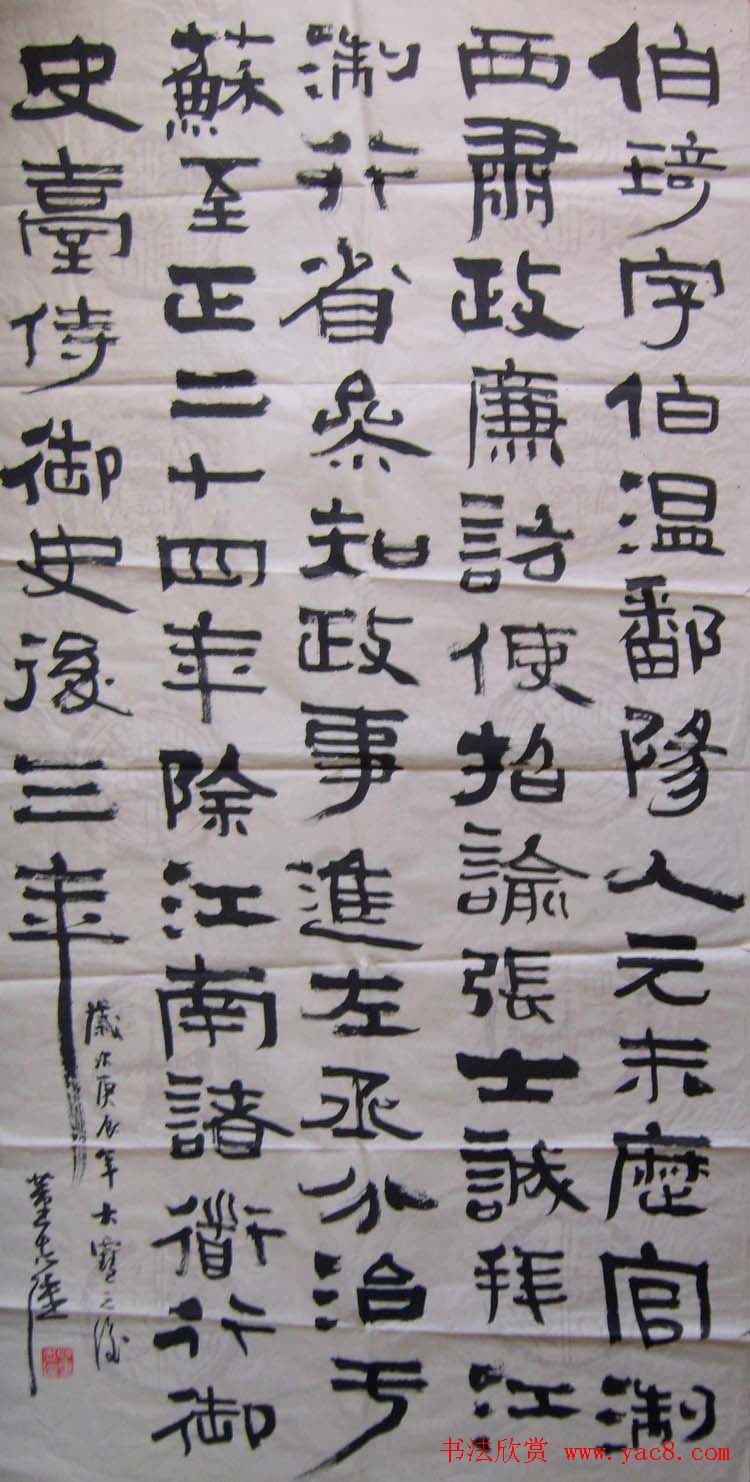 伯琦字伯温鄱陽人元末歷官浙
西肅政廉訪使招諭張士誠拜江
浙行省參知政事進左丞分治于
蘇至正二十四年除江南諸衟行御
史臺侍御史後三年
歲次庚辰年大寒之後
書法欣赏 www.yac8.com